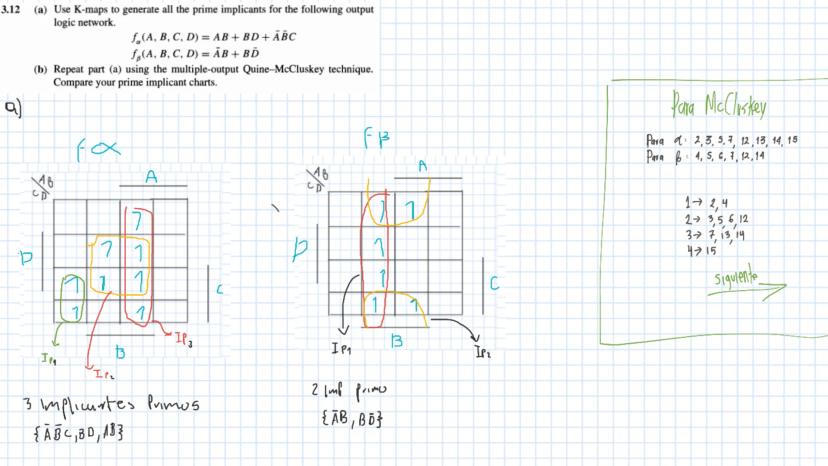 3.12 (a) Use K-maps to generate all the prime implicants for the following output
logic network.
fα(A, B, C, D) = AB + BD + ĀB̄C
fβ(A, B, C, D) = ĀB + BD̄
(b) Repeat part (a) using the multiple-output Quine–McCluskey technique.
Compare your prime implicant charts.
a)
Fα
AB
CD
A
D
C
B
1
1 1
1 1 1
1 1
IP1
IP2
IP3
3 Implicantes Primos
{ĀB̄C, BD, AB}
Fβ
AB
CD
A
D
C
B
1 1
1
1
1 1
IP1
IP2
2 Imp primo
{ĀB, BD̄}
Para McCluskey
Para α: 2, 3, 5, 7, 12, 13, 14, 15
Para β: 4, 5, 6, 7, 12, 14
1→ 2, 4
2→ 3, 5, 6, 12
3→ 7, 13, 14
4→ 15
siguiente